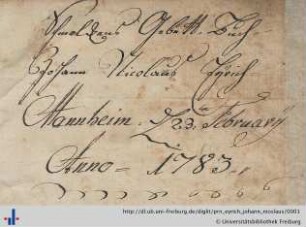 Gebett. Buch
Johann Nicolaus Eyrich
Mannheim. d 23 Februarÿ
Anno - 1783.
http://dl.ub.uni-freiburg.de/diglit/prn_eyrich_johann_nicolaus/0003
© Universitätsbibliothek Freiburg